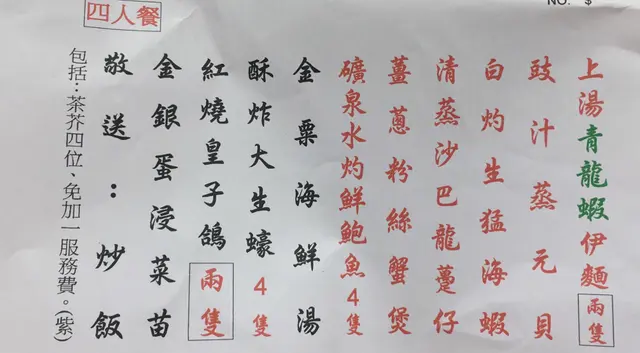 NO. $
四人餐
上湯青龍蝦伊麵 兩隻
豉汁蒸元貝
白灼生猛海蝦
清蒸沙巴龍躉仔
薑蔥粉絲蟹煲
礦泉水灼鮮鮑魚4隻
金粟海鮮湯
酥炸大生蠔4隻
紅燒皇子鴿 兩隻
金銀蛋浸菜苗
敬送：炒飯
包括：茶芥四位、免加一服務費。(紫)